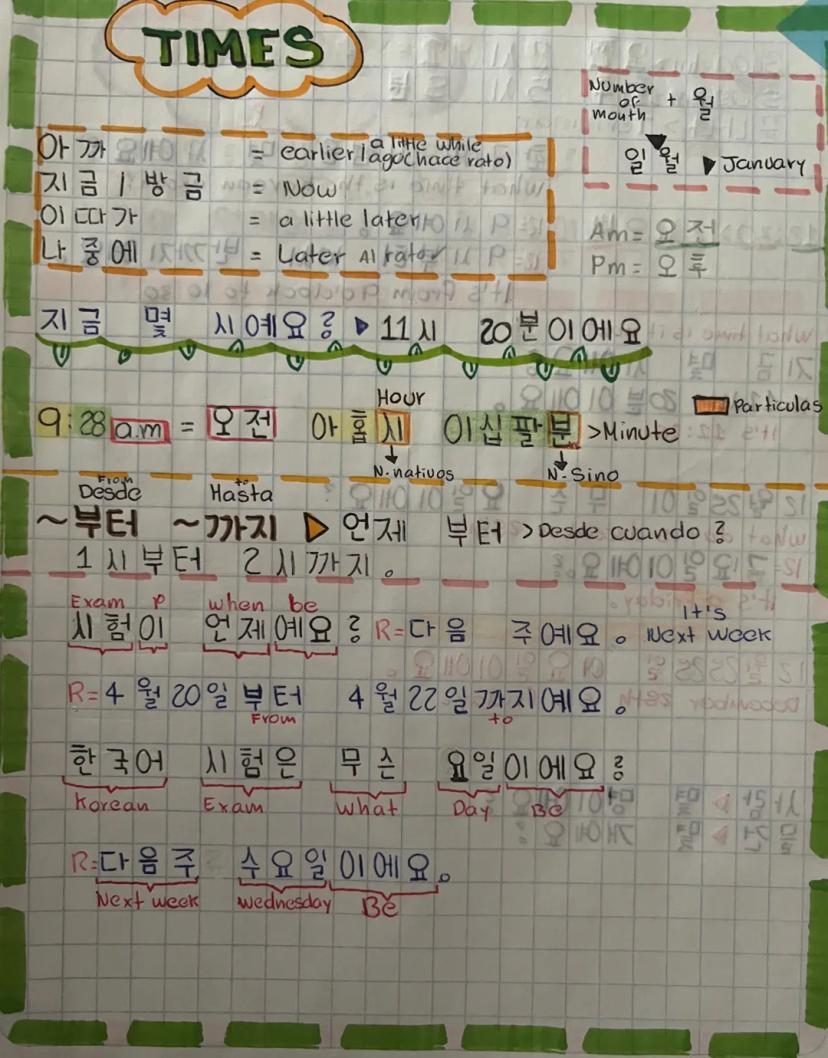 TIMES
Number of mouth + 월
일 월 ▶ January
아까 = earlier / a little while ago (hace rato)
지금 / 방금 = Now
이따가 = a little later
나중에 = Later Al rato
Am = 오전
Pm = 오후
지금 몇 시예요? ▶ 11시 20분이에요
Hour
9:28 a.m = 오전 아홉시 이십팔분 > Minute
Particulas
N. nativos N. Sino
From to
Desde Hasta
~부터 ~까지 ▶ 언제 부터 > Desde cuando?
1시부터 2시까지。
Exam P when be
시험이 언제예요? R= 다음 주예요。 It's Next week
R= 4월 20일 부터 4월 22일까지예요。
From to
한국어 시험은 무슨 요일이에요?
Korean Exam What Day Be
R= 다음 주 수요일이에요。
Next week Wednesday Be